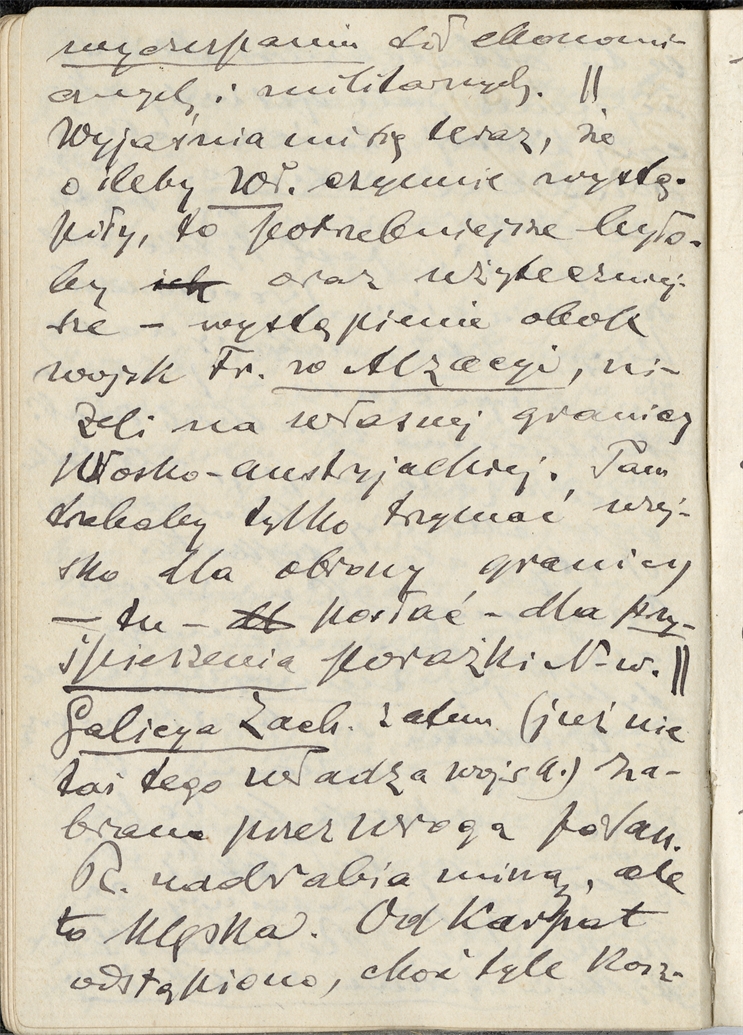 wyczerpaniu sił ekonomi-
cznych i militarnych. ||
Wyjaśnia mi się teraz, że
o ileby Wł. czynnie wystą-
piły, to potrzebniejsze było-
by ich oraz użyteczniej-
sze – wystąpienie obok
wojsk Fr. w Alzacyi, ni-
żeli na własnej granicy
Włosko-austryjackiej. Tam
trzebaby tylko trzymać woj-
sko dla obrony granicy
– tu – posłać – dla przy-
śpieszenia porażki N-w. ||
Galicya Zach. zatem (już nie
tai tego władza wojsk.) za-
brana przez wroga
R. nadrabia miną, ale
to klęska. Od Karpat
odstąpiono, choć tyle kosz-